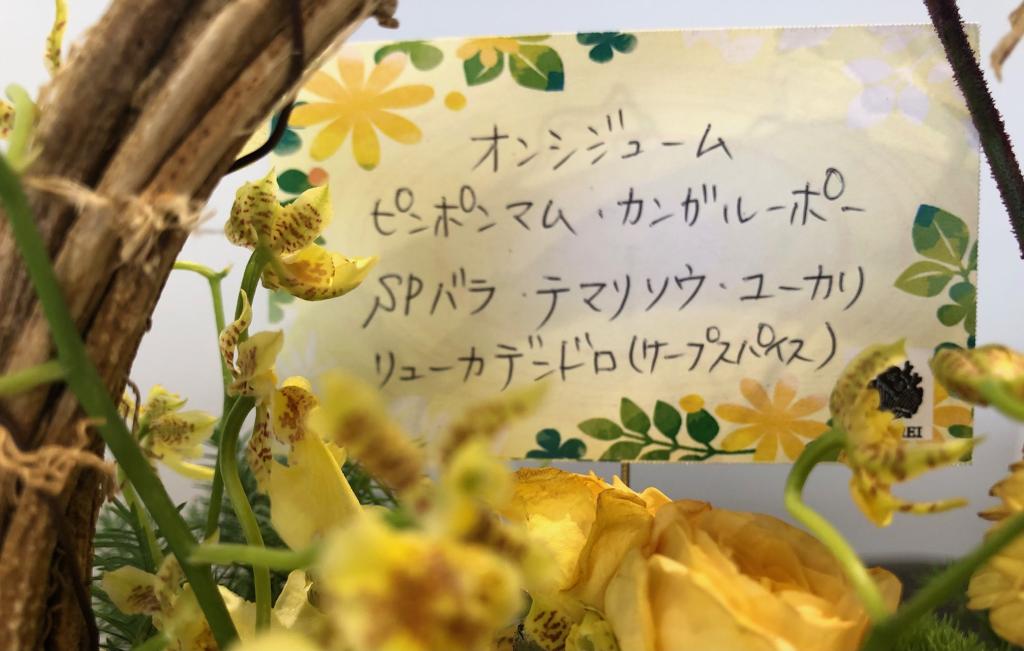 オンシジューム
ピンポンマム・カンガルーポー
SPバラ・テマリソウ・ユーカリ
リューカデンドロ(サープスパイス)